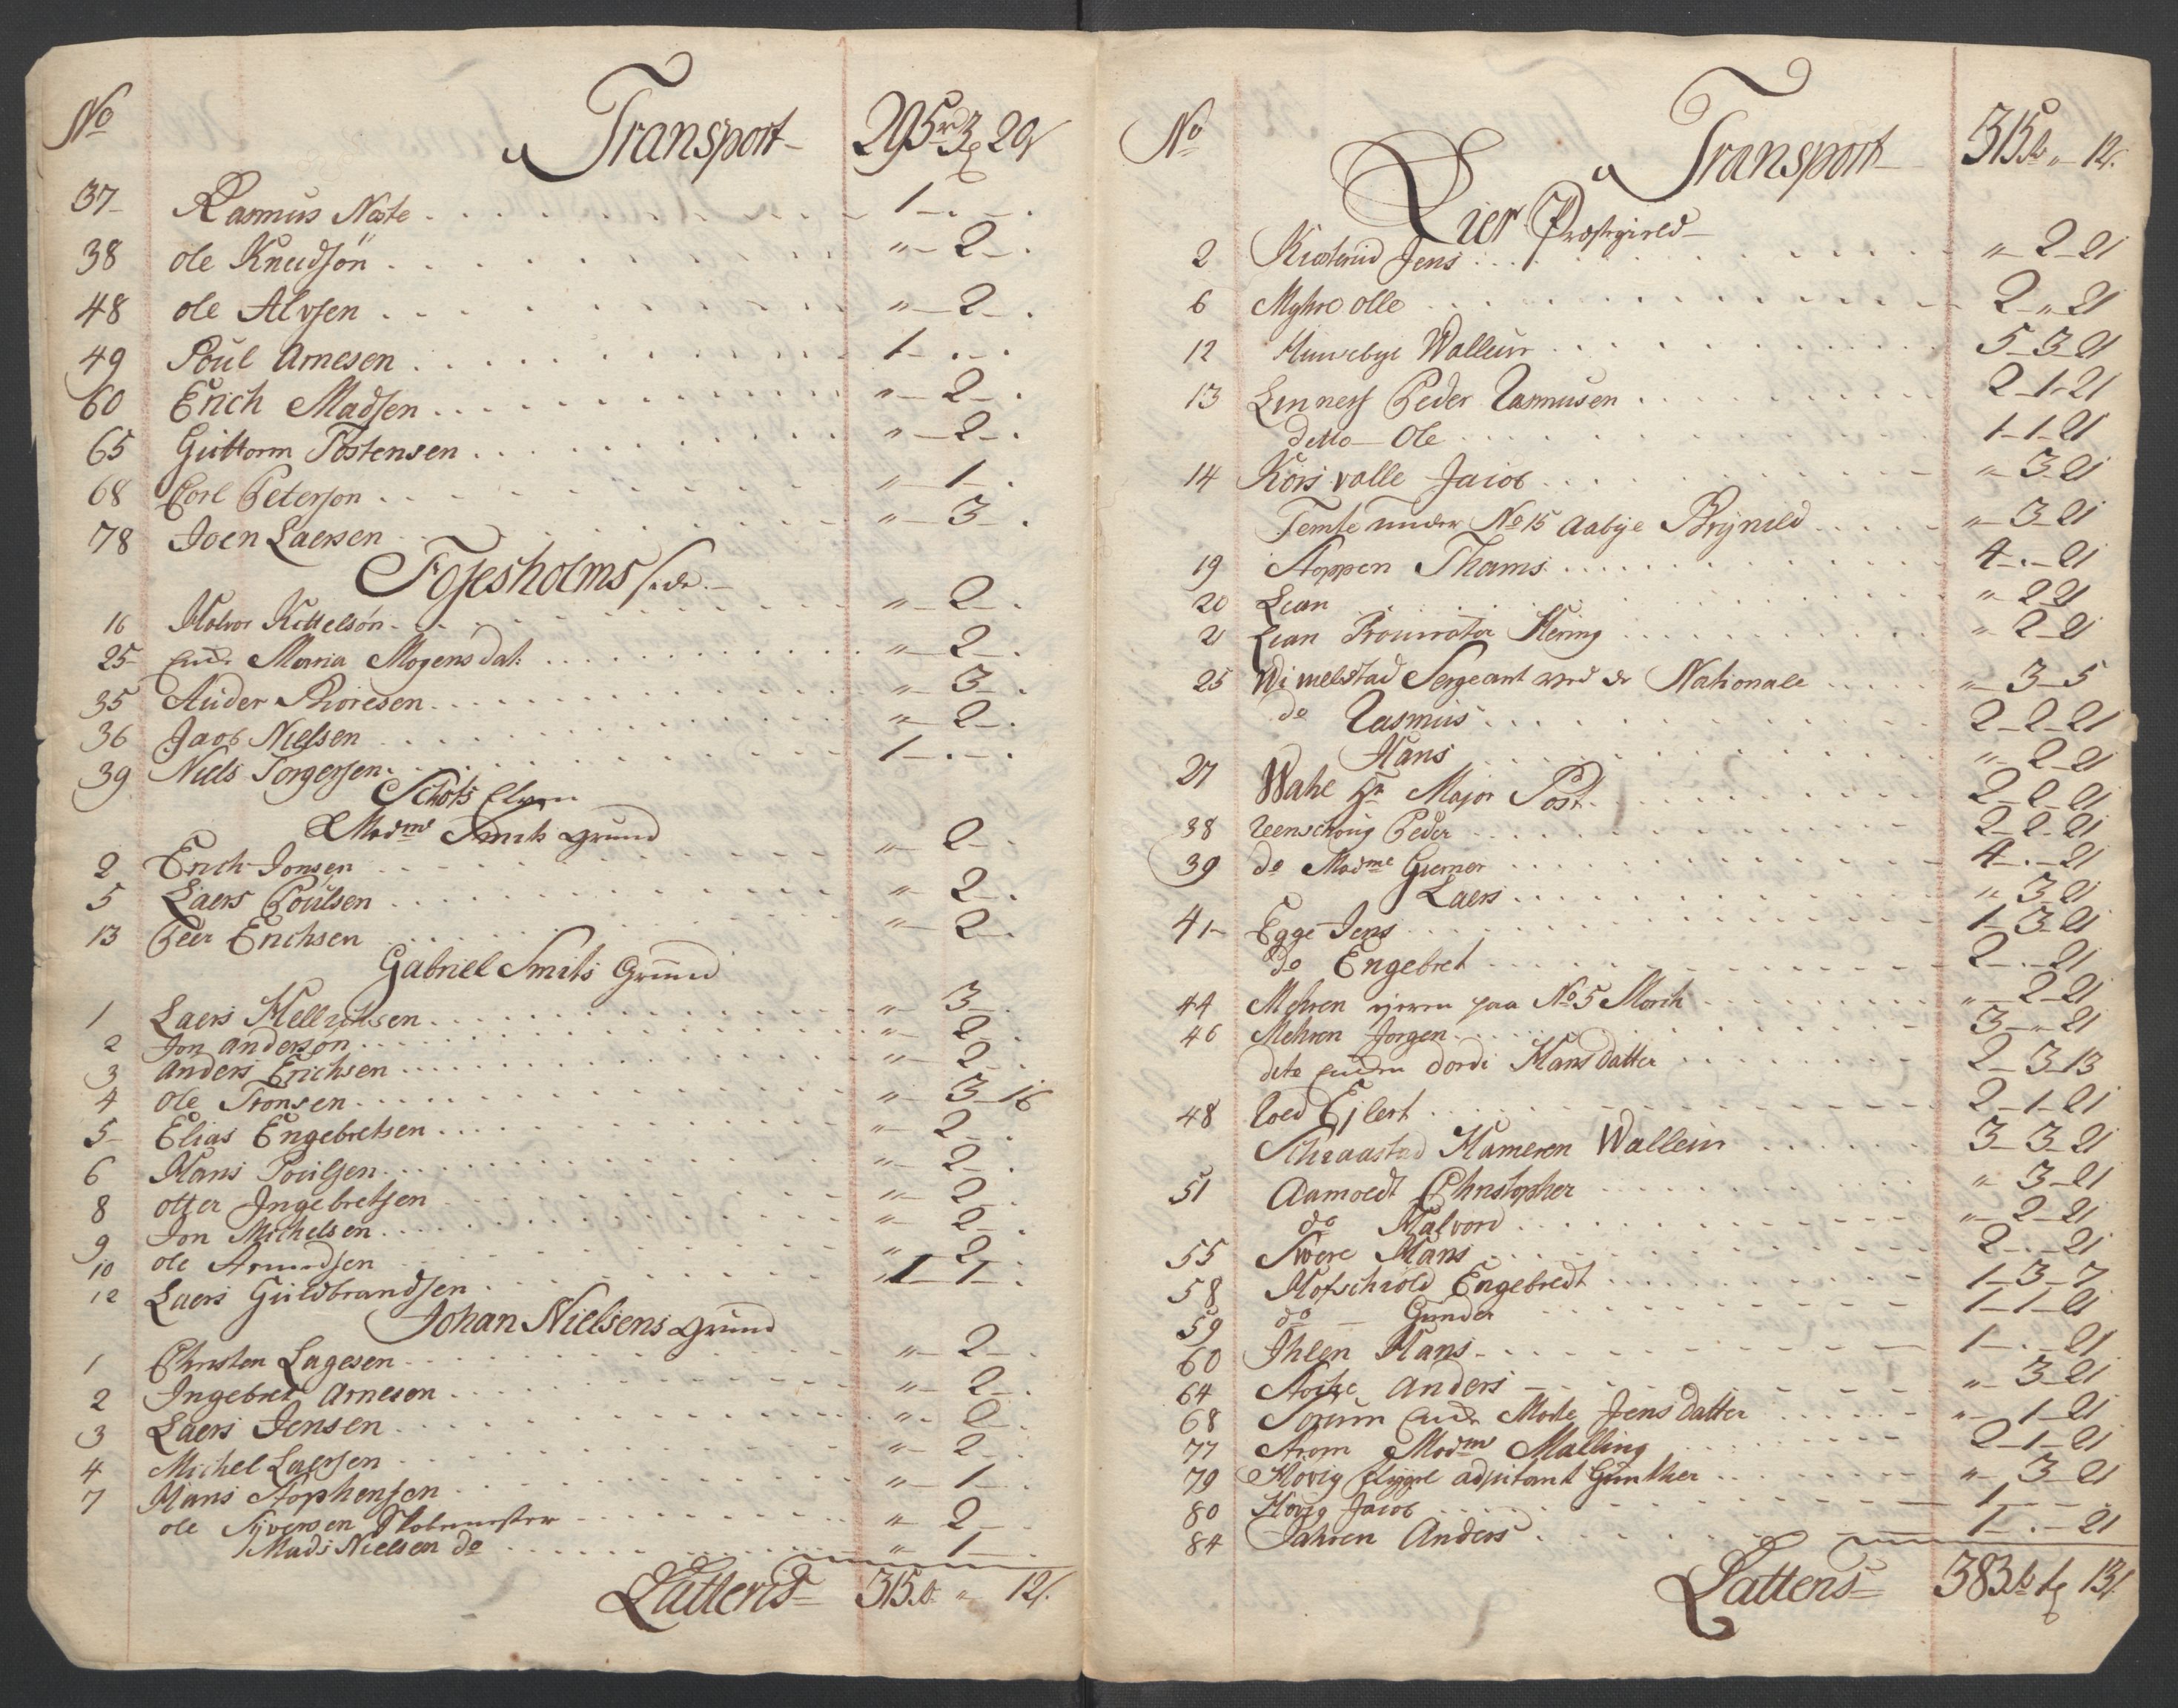 No Transport 295 rd 3 ꝗ 20 s
37 Rasmus Næste 1 - . - .
38 ole Knudsøn " - 2 - .
48 ole Alvsen " - 2 - .
49 Poul Arnesen 1 - . - .
60 Erich Madsen " - 2 - .
65 Guttorm Tostensen " - 2 - .
68 Carl Peterson " - 1 - .
78 Joen Laersen " - 3 - .
Fosesholms
16 Halvor Kittelsøn " - 2 - .
25 Maria Mogens dat: " - 2 - .
35 Auder Boresen " - 3 - .
36 Jacob Nielsen " - 2 - .
39 Niels Torgersen 1 - . - .
Schots Elven
Madme Smits grund
2 Erich Jonsen " - 2 - .
5 Laers Poulsen " - 2 - .
13 Peer Erichsen " - 2 - .
Gabriel Smits Grund
1 Laers Hellrichsen " - 3 - .
2 Jon andersøn " - 2 - .
3 anders Erichsen " - 2 - .
4 ole Tronsen " - 3 - 16
5 Elias Engebretsen " - 2 - .
6 Hans Poulsen " - 2 - .
8 otter Ingebretsen " - 2 - .
9 Jon Michelsen " - 2 - .
10 ole Amundsen " - 2 - .
12 Laers Guldbrandsen 1 - 1 - .
Johan Nielsens grund
1 Christen Lagesen " - 2 - .
2 Ingebret Arnesen " - 2 - .
3 Laers Jensen " - 2 - .
4 Michel Laersen " - 2 - .
7 Hans Stophensen " - 1 - .
ole Syversen " - 2 - .
Mads Nielsen do " - 1 - .
Lattens 315 rd " 12 s.
No Transport 315 rd " 12 s.
Lier Præstegield
2 Kiosterud Jens " - 2 - 21
6 Myhre olle 2 - " - 21
12 Huusebye Walleur 5 - 3 - 21
13 Linnes Peder Rasmusen 2 - 1 - 21
ditto Ole 1 - 1 - 21
14 Kors valle Jacob " - 3 - 21
Temte under No 15 Aabye Brynild " - 3 - 21
19 Stoppen Thams 4 - . - 21
20 Lian " - 2 21
21 Lian Procurator Hering " - 2 - 21
25 Wimelstad Sergeant ved de Nationale " - 3 - 5
do Rasmus 2 - 2 - 21
Hans " - 2 - 21
27 Wahl Hr Major Post 2 - 2 - 21
38 Renschoug Peder 2 - 2 - 21
39 do Madme Gierner 4 - . - 21
Laers " - 3 - 21
41 Egge Jens 1 - 3 - 21
do Engebret 2 - . - 21
44 Mehren paa No 5 Morch " - 2 - 21
46 Mehren Jorgen 3 - " - 21
dito dordi Hans datter 2 - 3 - 13
48 Roed Ejlert 2 - 1 - 21
Schraastad Kameren Walleur 3 - 3 - 21
51 Aamoedt Christopher " - 3 - 21
do Halvord " - 2 - 21
55 Svere Hans 2 - . - 21
58 Hofschiold Engebredt 1 - 3 - 7
59 do Gunder 1 - 1 - 21
60 Ihlen Hans 1 - . - 21
64 anders " - 3 - 21
68 Sorum Marte Jens datter " - 1 - 21
77 Strom Madme Malling 2 - 1 - 21
79 Hovig adjutant Gunther " - 3 - 21
80 Hovig Jacob 1 - . - .
84 Jahren Anders 1 - . - 21
Lattens 383 rd 1 ꝗ 13 s.